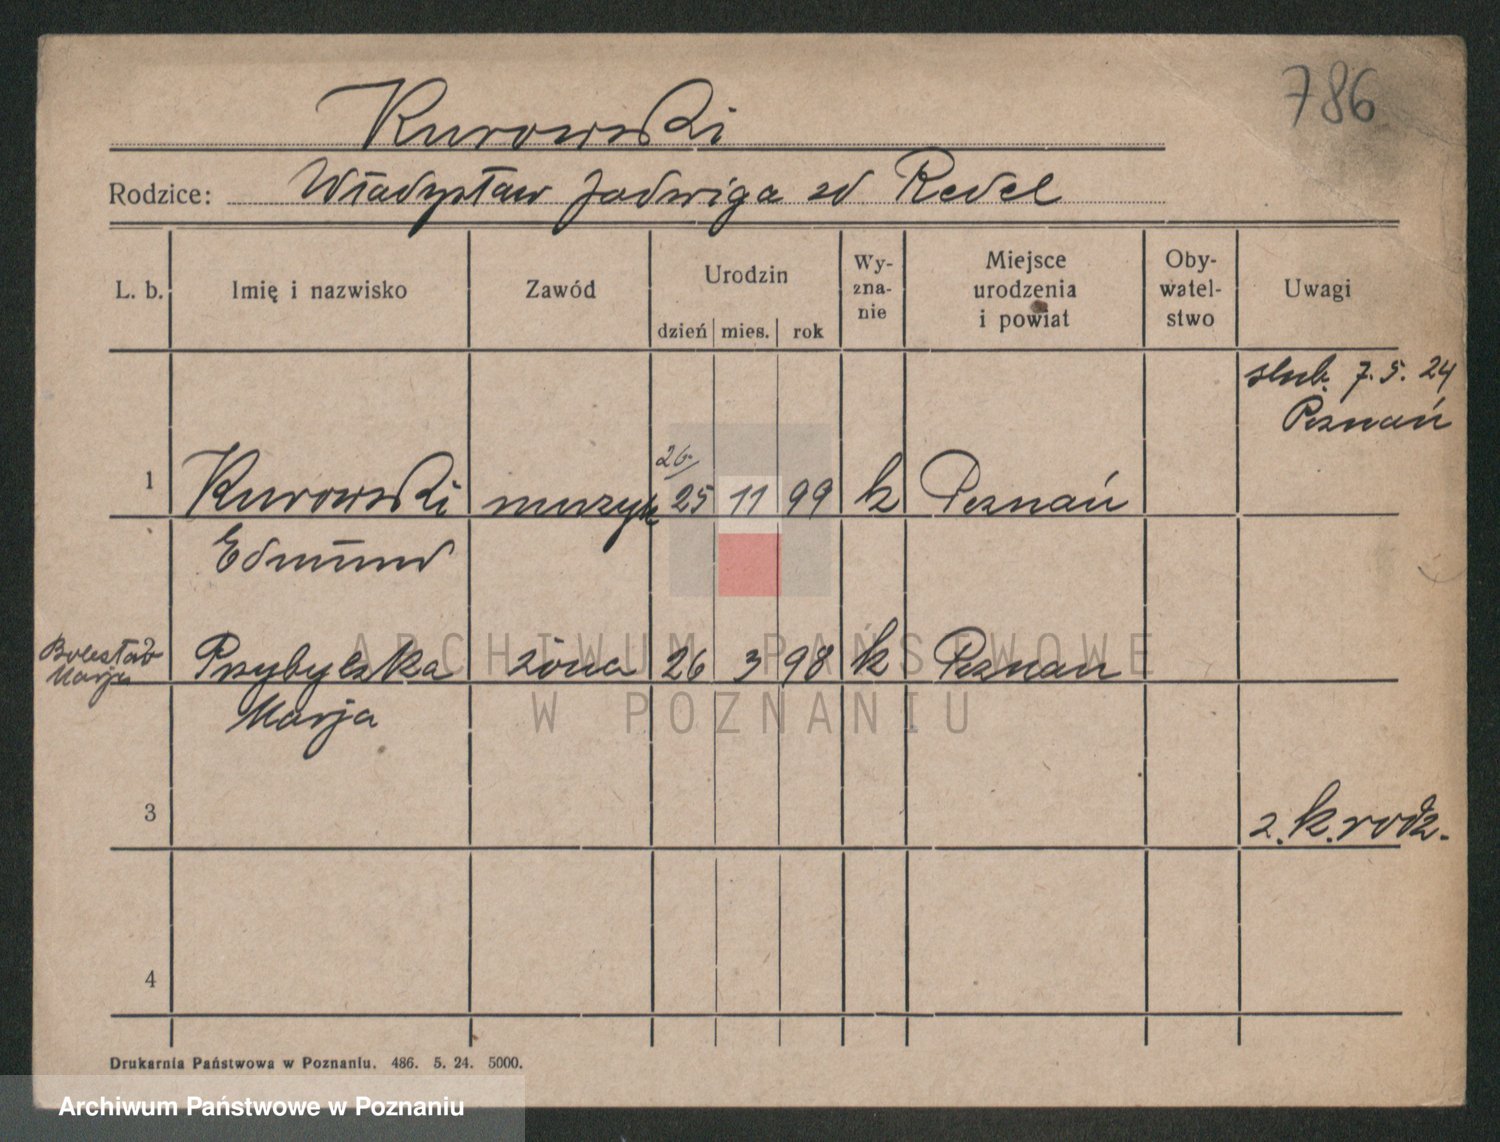 786
Kurowski
Rodzice: Władysław Jadwiga zd Redel
L. b. Imię i nazwisko Zawód Urodzin dzień mies. rok Wy-zna-nie Miejsce urodzenia i powiat Oby-watel-stwo Uwagi
slub. 7. 5. 24
Poznań
26/
1 Kurowski muzyk 25 11 99 k Poznań
Edmund
Bolesław 2 Przybylska żona 26 3 98 k Poznań
Marja
Marja
3 z. k. rodz.
4
ARCHIWUM PAŃSTWOWE
W POZNANIU
Drukarnia Państwowa w Poznaniu. 486. 5. 24. 5000.
Archiwum Państwowe w Poznaniu